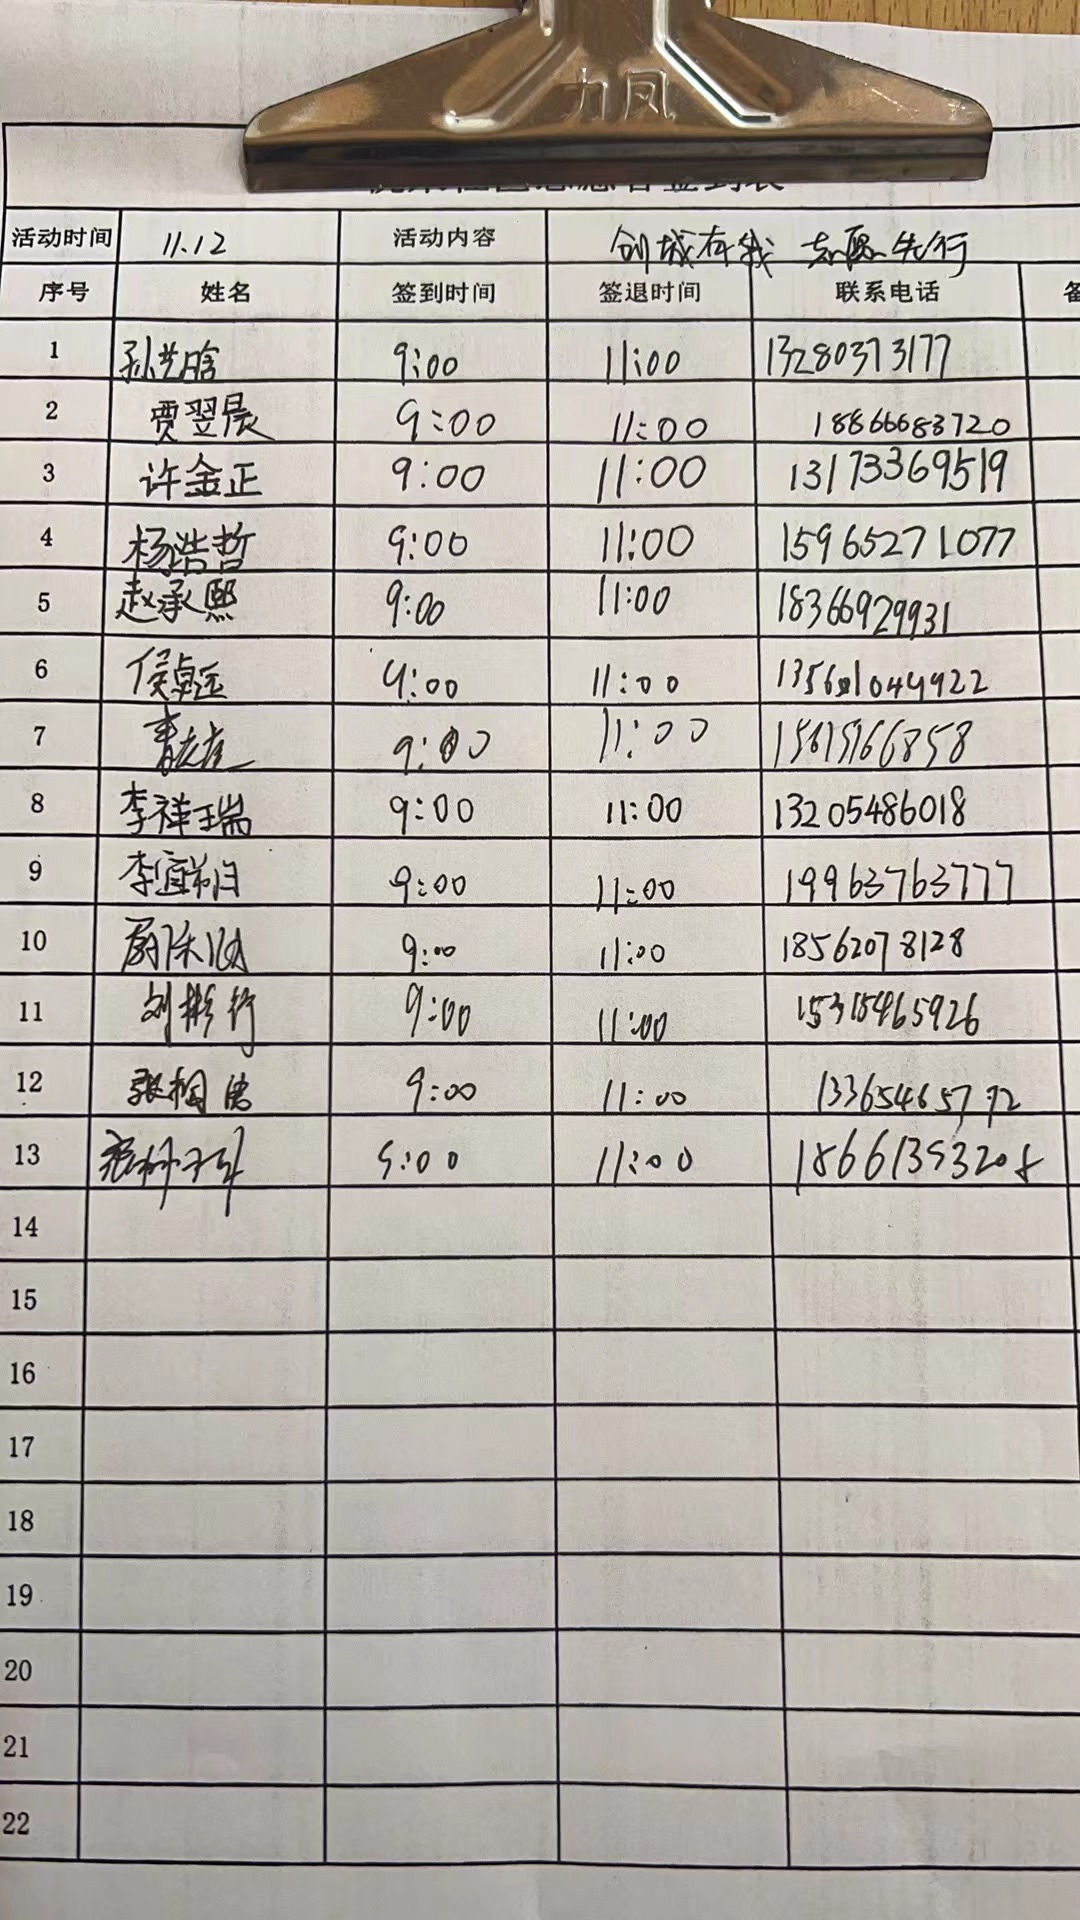 力凤
活动时间 11.12 活动内容 创城有我 志愿先行
序号 姓名 签到时间 签退时间 联系电话 备
1 9:00 11:00 13280373177
2 贾翌晨 9:00 11:00 18866683720
3 许金正 9:00 11:00 13173369519
4 杨浩哲 9:00 11:00 15965271077
5 赵承熙 9:00 11:00 18366929931
6 侯卓 9:00 11:00
7 9:00 11:00
8 李祥瑞 9:00 11:00 13205486018
9 李宜 9:00 11:00 19963763777
10 9:00 11:00 18562078128
11 刘彬行 9:00 11:00 15315465926
12 张桐 9:00 11:00 13365465792
13 9:00 11:00 18661393208
14
15
16
17
18
19
20
21
22